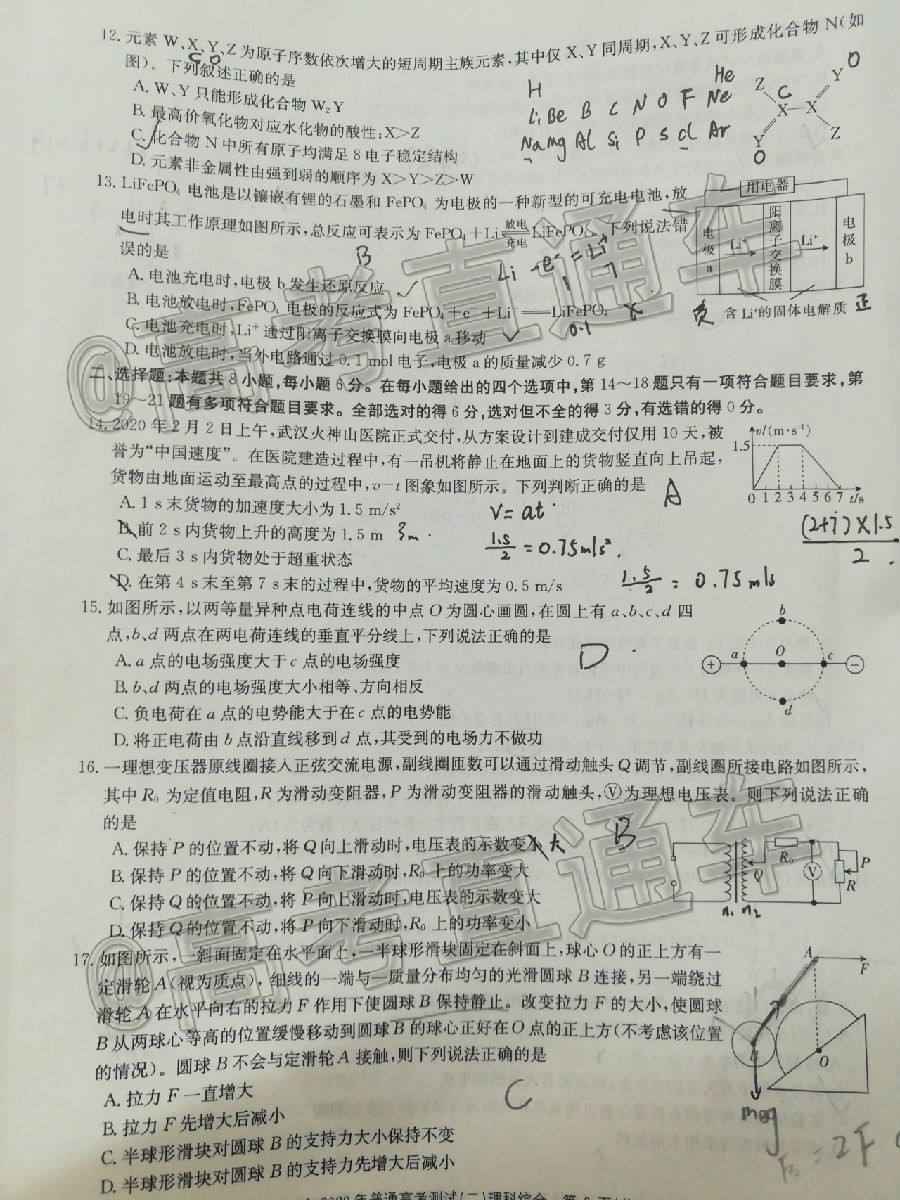 12. 元素 W、X、Y、Z 为原子序数依次增大的短周期主族元素,其中仅 X、Y 同周期,X、Y、Z 可形成化合物 N(如
图)。下列叙述正确的是
A. W、Y 只能形成化合物 W₂Y
B. 最高价氧化物对应水化物的酸性:X>Z
C. 化合物 N 中所有原子均满足 8 电子稳定结构
D. 元素非金属性由强到弱的顺序为 X>Y>Z>W
C O
H He
Li Be B C N O F Ne
Na Mg Al Si P S Cl Ar
Z C Y O
X—X
Y Z
O
13. LiFePO₄ 电池是以镶嵌有锂的石墨和 FePO₄ 为电极的一种新型的可充电电池,放
电时其工作原理如图所示,总反应可表示为 FePO₄+Li 放电 充电 LiFePO₄。下列说法错
误的是 B
A. 电池充电时,电极 b 发生还原反应
B. 电池放电时,FePO₄ 电极的反应式为 FePO₄+e⁻+Li══LiFePO₄
C. 电池充电时,Li⁺通过阳离子交换膜向电极 a 移动
D. 电池放电时,当外电路通过 0.1 mol 电子,电极 a 的质量减少 0.7 g
Li -e⁻ = Li⁺
1 7
0.1
用电器
电极a
Li⁺
阳离子交换膜
Li⁺
电极b
负 含 Li⁺的固体电解质 正
二、选择题:本题共 8 小题,每小题 6 分。在每小题给出的四个选项中,第 14～18 题只有一项符合题目要求,第
19～21 题有多项符合题目要求。全部选对的得 6 分,选对但不全的得 3 分,有选错的得 0 分。
14. 2020 年 2 月 2 日上午,武汉火神山医院正式交付,从方案设计到建成交付仅用 10 天,被
誉为“中国速度”。在医院建造过程中,有一吊机将静止在地面上的货物竖直向上吊起,
货物由地面运动至最高点的过程中,v—t 图象如图所示。下列判断正确的是 A
A. 1 s 末货物的加速度大小为 1.5 m/s²
B. 前 2 s 内货物上升的高度为 1.5 m 3m
C. 最后 3 s 内货物处于超重状态
D. 在第 4 s 末至第 7 s 末的过程中,货物的平均速度为 0.5 m/s
V=at
1.5/2 = 0.75m/s².
1.5/2 = 0.75m/s
v/(m·s⁻¹)
1.5
0 1 2 3 4 5 6 7 t/s
(2+7)×1.5
2
15. 如图所示,以两等量异种点电荷连线的中点 O 为圆心画圆,在圆上有 a、b、c、d 四
点,b、d 两点在两电荷连线的垂直平分线上,下列说法正确的是
A. a 点的电场强度大于 c 点的电场强度 D
B. b、d 两点的电场强度大小相等、方向相反
C. 负电荷在 a 点的电势能大于在 c 点的电势能
D. 将正电荷由 b 点沿直线移到 d 点,其受到的电场力不做功
b
+ a O c −
d
16. 一理想变压器原线圈接入正弦交流电源,副线圈匝数可以通过滑动触头 Q 调节,副线圈所接电路如图所示,
其中 R₀ 为定值电阻,R 为滑动变阻器,P 为滑动变阻器的滑动触头,Ⓥ为理想电压表。则下列说法正确
的是
A. 保持 P 的位置不动,将 Q 向上滑动时,电压表的示数变小 大 B
B. 保持 P 的位置不动,将 Q 向下滑动时,R₀ 上的功率变大
C. 保持 Q 的位置不动,将 P 向上滑动时,电压表的示数变大
D. 保持 Q 的位置不动,将 P 向下滑动时,R₀ 上的功率变小
R₀ P
Q V R
n₁ n₂
17. 如图所示,一斜面固定在水平面上,一半球形滑块固定在斜面上,球心 O 的正上方有一
定滑轮 A(视为质点),细线的一端与一质量分布均匀的光滑圆球 B 连接,另一端绕过
滑轮 A 在水平向右的拉力 F 作用下使圆球 B 保持静止。改变拉力 F 的大小,使圆球
B 从两球心等高的位置缓慢移动到圆球 B 的球心正好在 O 点的正上方(不考虑该位置
的情况)。圆球 B 不会与定滑轮 A 接触,则下列说法正确的是
A. 拉力 F 一直增大
B. 拉力 F 先增大后减小
C. 半球形滑块对圆球 B 的支持力大小保持不变
D. 半球形滑块对圆球 B 的支持力先增大后减小
C
A F
B O
mog
=2F
@高考直通车
@高考直通车
2020 年普通高考测试(二)理科综合